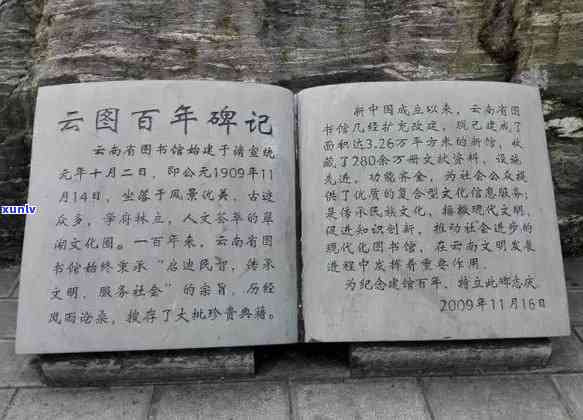 云图百年碑记
云南省图书馆始建于清宣统
元年十月二日，即公元1909年11
月14日，坐落于风景优美、古迹
众多、学府林立、人文荟萃的翠
湖文化圈。一百年来，云南省图
书馆始终秉承“启迪民智，传承
文明，服务社会”的宗旨，历经
风雨沧桑，搜存了大批珍贵典籍。
新中国成立以来，云南省图
书馆几经扩充改建，现已建成了
面积达3.26万平方米的新馆，收
藏了280余万册文献资料，设施
先进，功能齐全，为社会公众提
供了优质的复合型文化信息服务；
是传承民族文化，播撒现代文明，
促进知识创新，推动社会进步的
现代化图书馆，在云南文明发展
进程中发挥着重要作用。
为纪念建馆百年，特立此碑志庆。
2009年11月16日
xunlv